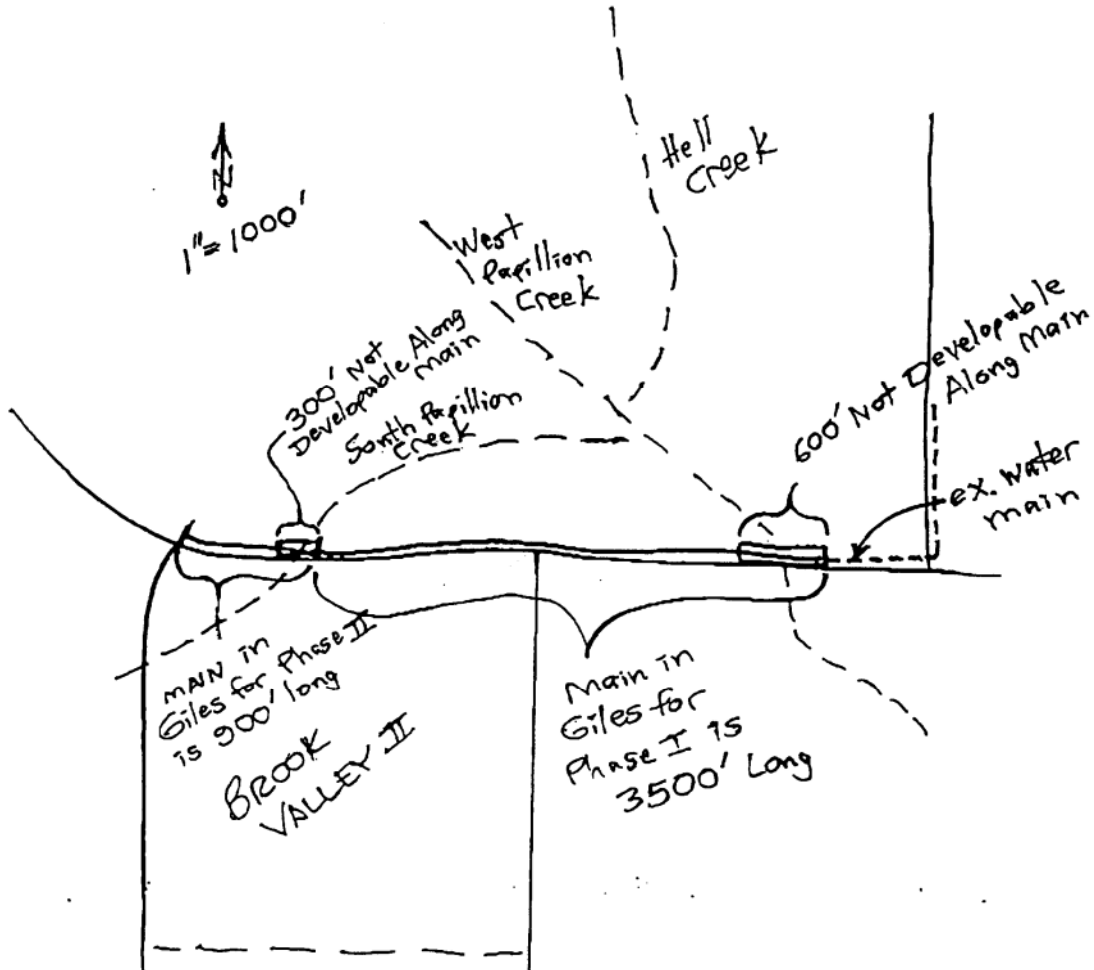 N
1"= 1000'
Hell
Creek
West
Papillion
Creek
300' Not
Developable Along
main
South Papillion
Creek
600' Not Developable
Along Main
ex. water
main
MAIN in
Giles for Phase II
is 900' long
BROOK
VALLEY II
Main in
Giles for
Phase I is
3500' Long